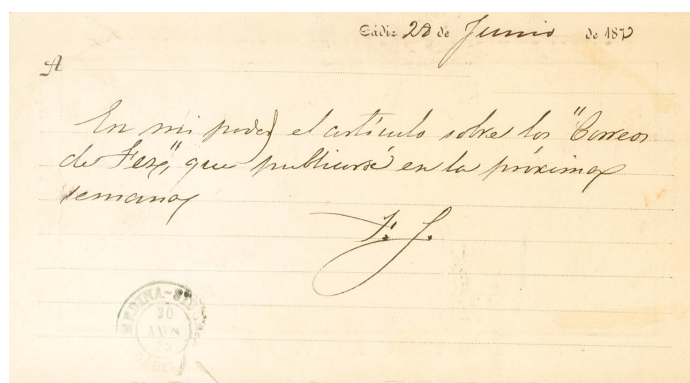 Cádiz 28 de Junio de 187
A
En mi poder el artículo sobre los "Correos
de Fez", que publicaré en la próxima
semana
F. G.
MEDINA-SIDONIA
30
JUN
CADIZ